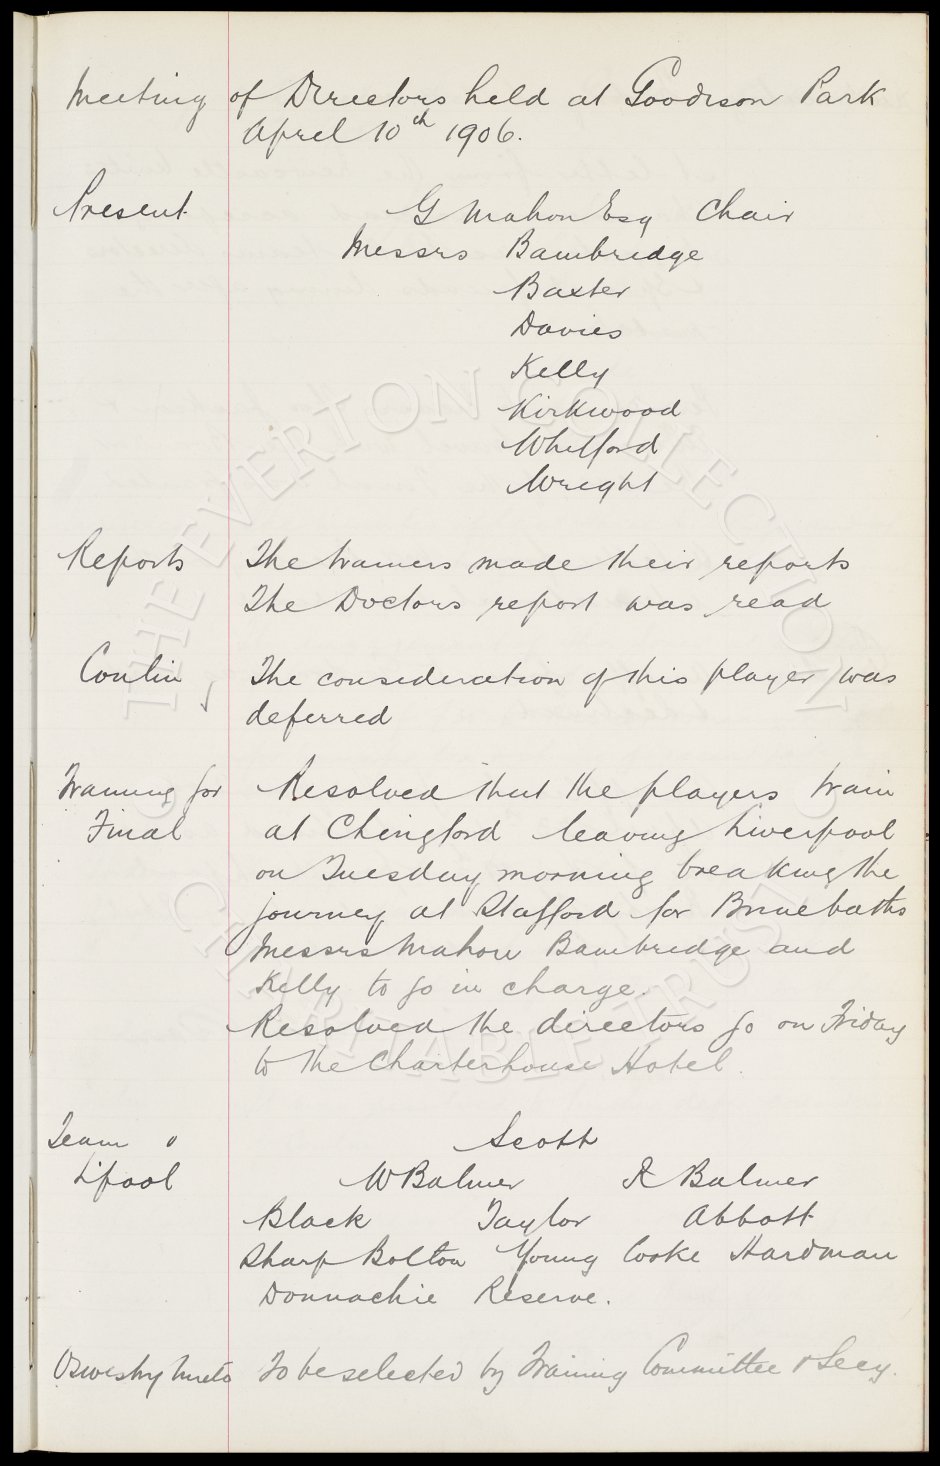 Meeting of Directors held at Goodison Park
April 10th 1906.
Present G Mahon Esq Chair
Messrs Bambridge
Baxter
Davies
Kelly
Kirkwood
Whitford
Wright
Reports The trainers made their reports
The Doctors report was read
Conlin The consideration of this player was
deferred
Training for Resolved that the players train
Final at Chingford leaving Liverpool
on Tuesday morning breaking the
journey at Stafford for Brine baths
Messrs Mahon Bambridge and
Kelly to go in charge.
Resolved the directors go on Friday
to the Charterhouse Hotel.
Team v Scott
L'pool W Balmer R Balmer
Black Taylor Abbott
Sharp Bolton Young Cooke Hardman
Donnachie Reserve.
Oswestry To be selected by Training Committee & Secy.
THE EVERTON COLLECTION
CHARITABLE TRUST